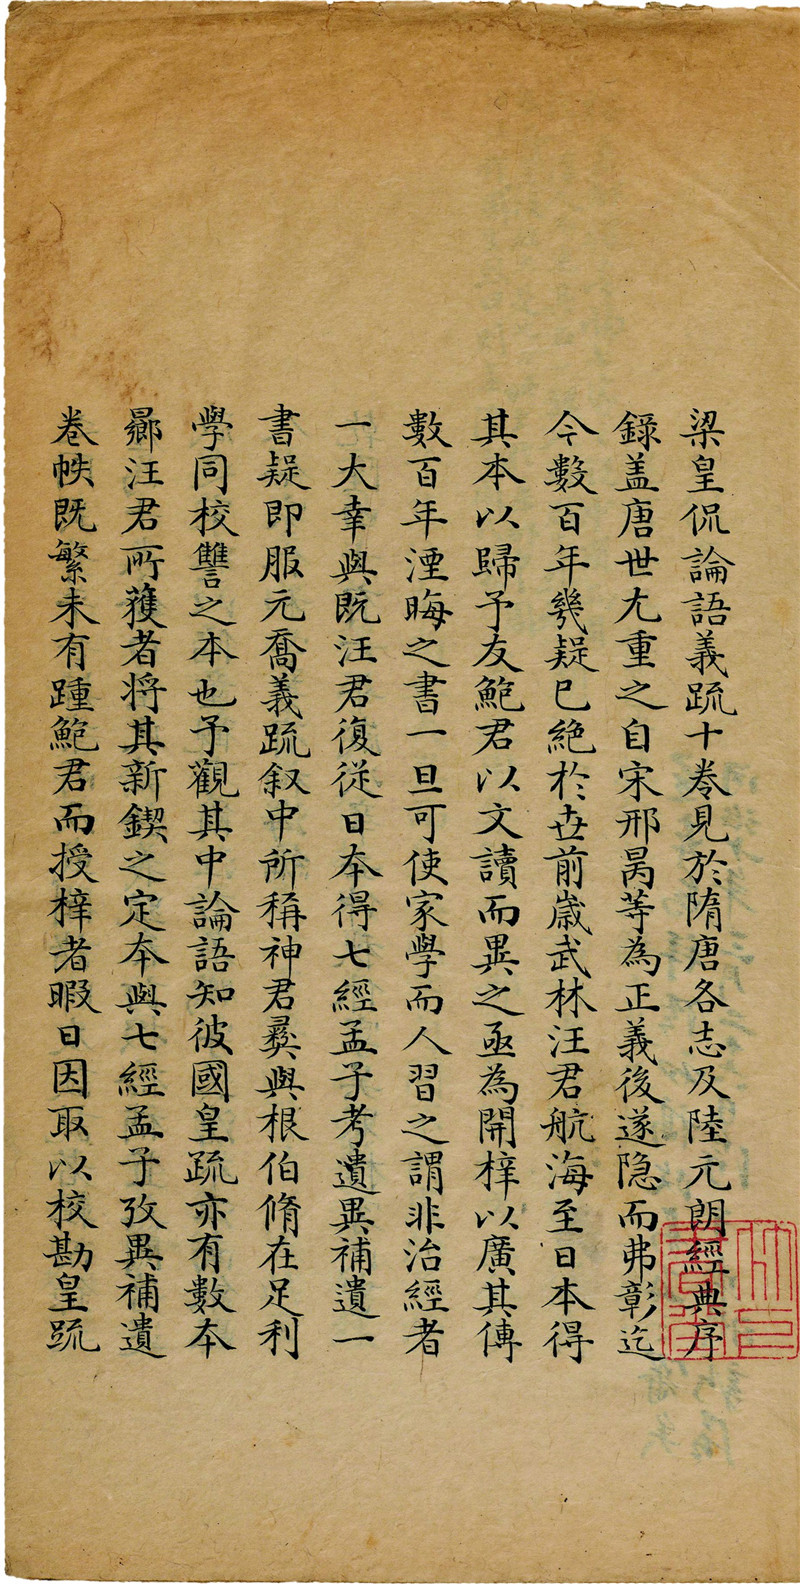 梁皇侃論語義疏十卷見於隋唐各志及陸元朗經典序
錄盖唐世尤重之自宋邢昺等為正義後遂隐而弗彰迄
今數百年幾疑已絕於世前歲武林汪君航海至日本得
其本以歸予友鮑君以文讀而異之亟為開梓以廣其傳
數百年湮晦之書一旦可使家學而人習之謂非治經者
一大幸與既汪君復從日本得七經孟子考遺異補遺一
書疑即服元喬義疏叙中所稱神君彞與根伯脩在足利
學同校讐之本也予觀其中論語知彼國皇疏亦有數本
曏汪君所獲者将其新鍥之定本與七經孟子攷異補遺
卷帙既繁未有踵鮑君而授梓者暇日因取以校勘皇疏